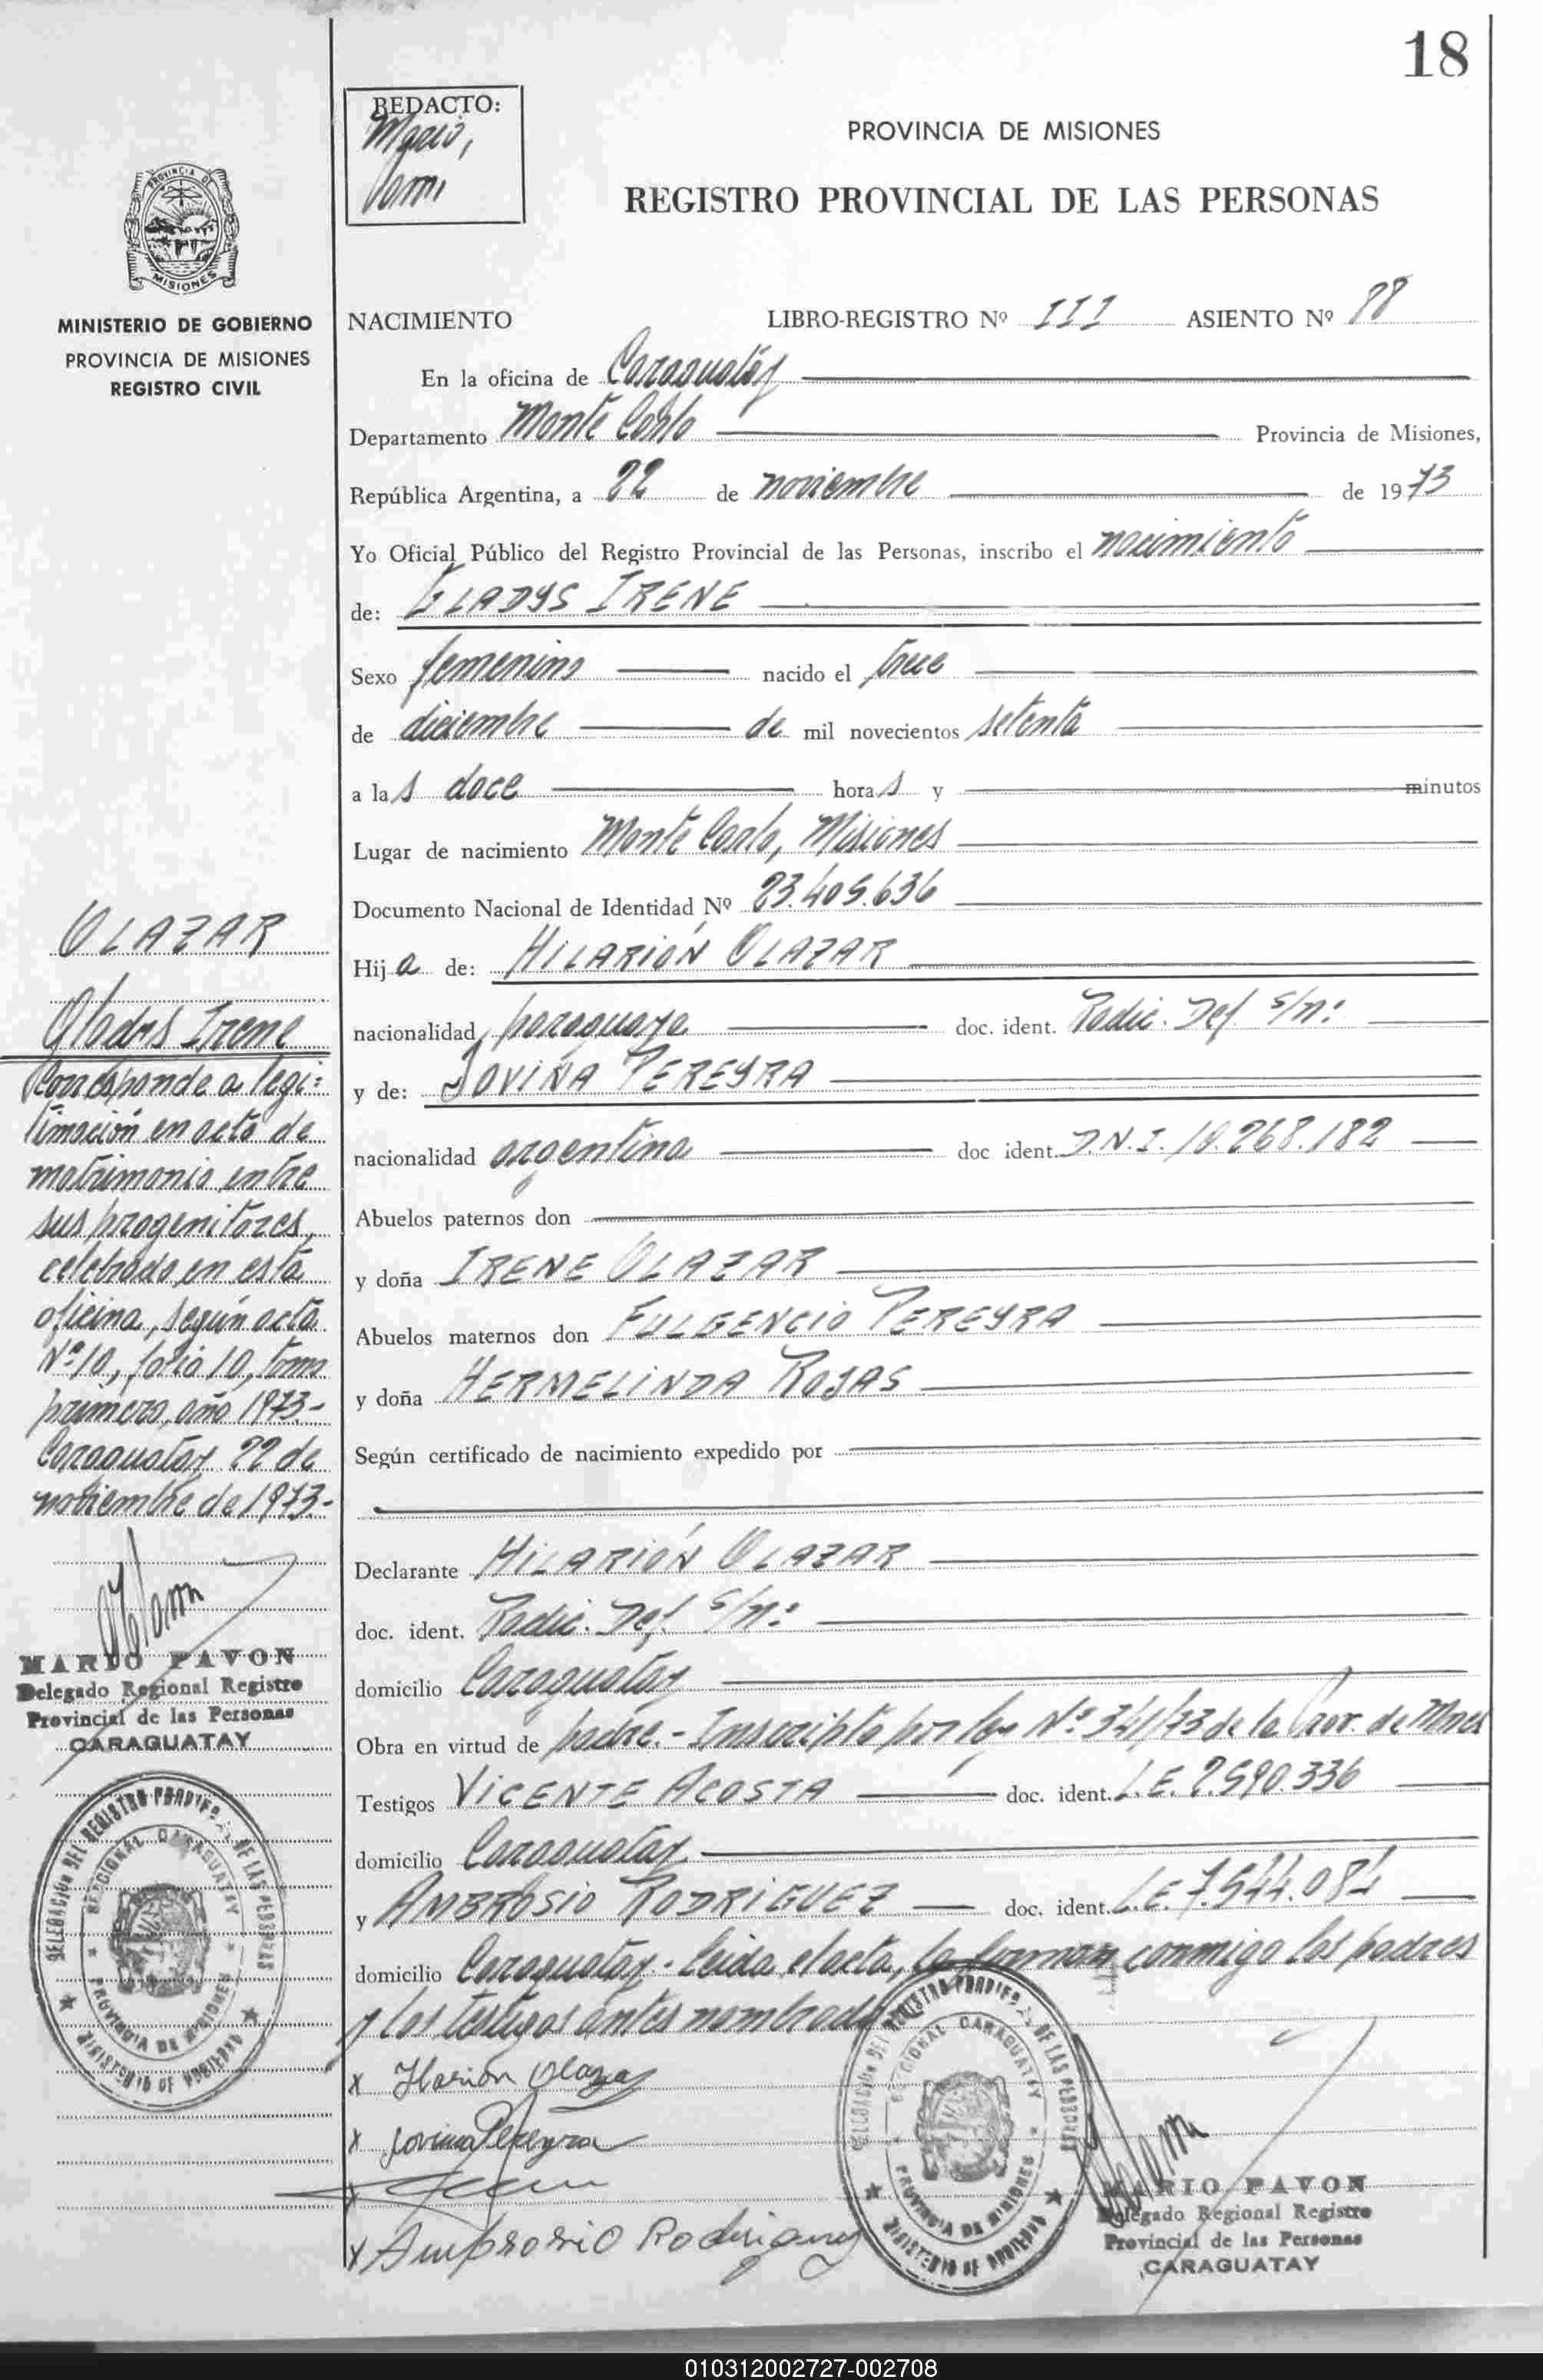 18
REDACTO:
PROVINCIA DE MISIONES
REGISTRO PROVINCIAL DE LAS PERSONAS
PROVINCIA DE
MISIONES
MINISTERIO DE GOBIERNO
PROVINCIA DE MISIONES
REGISTRO CIVIL
NACIMIENTO LIBRO-REGISTRO Nº III ASIENTO Nº
En la oficina de Caraguatáy
Departamento Monte Carlo Provincia de Misiones,
República Argentina, a 22 de noviembre de 1973
Yo Oficial Público del Registro Provincial de las Personas, inscribo el nacimiento
de: GLADYS IRENE
Sexo femenino nacido el trece
de diciembre de mil novecientos setenta
a las doce horas y minutos
Lugar de nacimiento Monte Carlo, Misiones
Documento Nacional de Identidad Nº 23.405.636
Hija de: HILARIÓN OLAZAR
nacionalidad paraguaya doc. ident. Radic. Def. s/nº
y de: JOVINA PEREYRA
nacionalidad argentina doc ident. D.N.I. 10.268.182
Abuelos paternos don
y doña IRENE OLAZAR
Abuelos maternos don FULGENCIO PEREYRA
y doña HERMELINDA ROJAS
Según certificado de nacimiento expedido por
Declarante HILARIÓN OLAZAR
doc. ident. Radic. Def. s/nº
domicilio Caraguatay
Obra en virtud de padre.- Inscripto por ley Nº 341/73 de la Gov. de Mnes
Testigos VICENTE ACOSTA doc. ident. L.E. 2.590.336
domicilio Caraguatay
y AMBROSIO RODRIGUEZ doc. ident. L.E. 7.544.084
domicilio Caraguatay- Leída el acta, la firman conmigo los padres
y los testigos antes nombrados
x Ilarión Olazar
x Jovina Pereyra
x
x Ambrosio Rodriguez
OLAZAR
Gladys Irene
Corresponde a legi-
timación en acto de
matrimonio entre
sus progenitores,
celebrado en esta
oficina, según acta
Nº 10, folio 10, tomo
primero, año 1973-
Caraguatay 22 de
noviembre de 1973.-
MARIO PAVON
Delegado Regional Registro
Provincial de las Personas
CARAGUATAY
DELEGACION DEL REGISTRO PROVINCIAL DE LAS PERSONAS
SECCIONAL CARAGUATAY
PROVINCIA DE MISIONES
MINISTERIO DE GOBIERNO
DELEGACION DEL REGISTRO PROVINCIAL DE LAS PERSONAS
SECCIONAL CARAGUATAY
PROVINCIA DE MISIONES
MINISTERIO DE GOBIERNO
MARIO PAVON
Delegado Regional Registro
Provincial de las Personas
CARAGUATAY
010312002727-002708